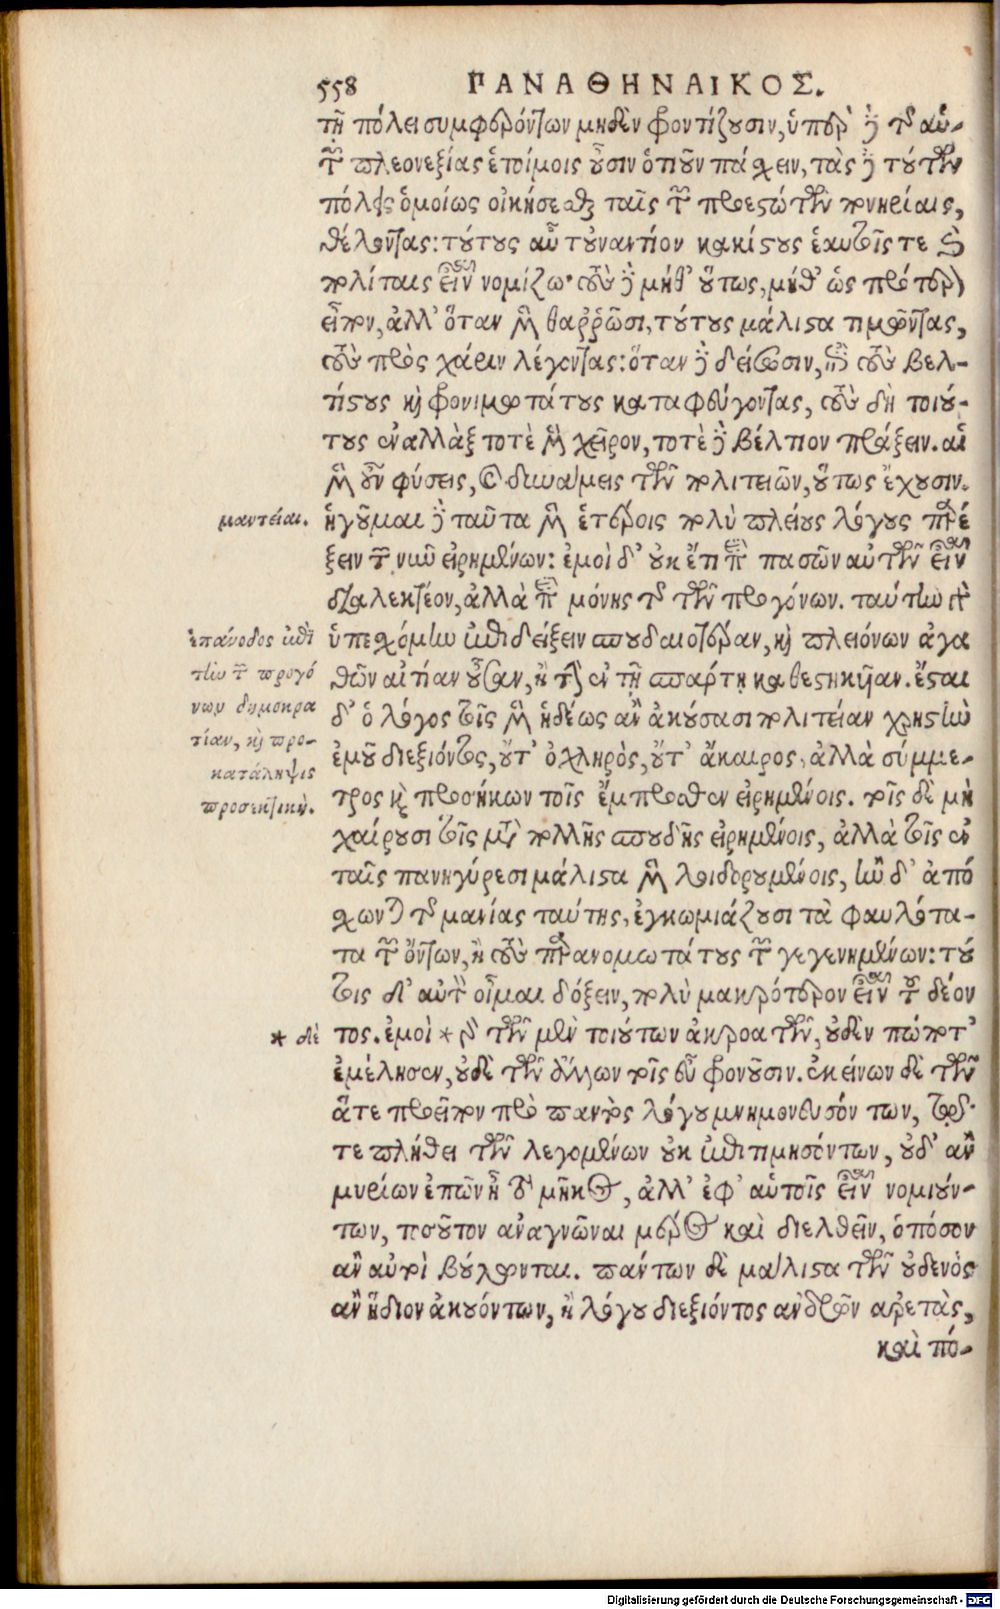 558 ΠΑΝΑΘΗΝΑΙΚΟΣ.
τῇ πόλει συμφερόντων μηδὲν φροντίζουσιν, ὑπὲρ δὲ τῆς αὑ-
τῶν πλεονεξίας ἑτοίμοις οὖσιν ὁτιοῦν πάσχειν, τὰς δὲ τούτων
πόλεις ὁμοίως οἰκήσεσθαι ταῖς τῶν προεστώτων πονηρίαις,
θέλοντας: τούτους αὖ τοὐναντίον κακίστους ἑαυτοῖς τε καὶ τοῖς
πολίταις εἶναι νομίζω· τοὺς δὲ μήθ' οὕτως, μήθ' ὡς πρότερον
εἶπον, ἀλλ' ὅταν μὲν θαῤῥῶσι, τούτους μάλιστα τιμῶντας,
τοὺς πρὸς χάριν λέγοντας: ὅταν δὲ δείσωσιν, ἐπὶ τοὺς βελ-
τίστους καὶ φρονιμωτάτους καταφεύγοντας, τοὺς δὴ τοιού-
τους ἐναλλὰξ τοτὲ μὲν χεῖρον, τοτὲ δὲ βέλτιον πράξειν. αἱ
μὲν οὖν φύσεις, καὶ δυνάμεις τῶν πολιτειῶν, οὕτως ἔχουσιν.
μαντείαι. ἡγοῦμαι δὲ ταῦτα μὲν ἑτέροις πολὺ πλείους λόγους παρέ
ξειν τῶν νῦν εἰρημένων: ἐμοὶ δ' οὐκ ἔτι περὶ πασῶν αὐτῶν εἶναι
διαλεκτέον, ἀλλὰ περὶ μόνης τῆς τῶν προγόνων. ταύτην γὰρ
ἐπάνοδος ἐπὶ ὑπεσχόμην ἐπιδείξειν σπουδαιοτέραν, καὶ πλειόνων ἀγα
τὴν τῶν προγό θῶν αἰτίαν οὖσαν, ἢ τῆς ἐν τῇ σπάρτῃ καθεστηκυῖαν. ἔσται
νων δημοκρα δ' ὁ λόγος τοῖς μὲν ἡδέως ἂν ἀκούσασι πολιτείαν χρηστὴν
τίαν, καὶ προ- ἐμοῦ διεξιόντος, οὔτ' ὀχληρὸς, οὔτ' ἄκαιρος, ἀλλὰ σύμμε-
κατάληψις
προσεκτική. τρος καὶ προσήκων τοῖς ἔμπροσθεν εἰρημένοις. τοῖς δὲ μὴ
χαίρουσι τοῖς μετὰ πολλῆς σπουδῆς εἰρημένοις, ἀλλὰ τοῖς ἐν
ταῖς πανηγύρεσι μάλιστα μὲν λοιδορουμένοις, ἢν δ' ἀπό
σχωνται τῆς μανίας ταύτης, ἐγκωμιάζουσι τὰ φαυλότα-
τα τῶν ὄντων, ἢ τοὺς παρανομωτάτους τῶν γεγενημένων: τού
τοις δ' αὐτὸν οἶμαι δόξειν, πολὺ μακρότερον εἶναι τοῦ δέον
* δὲ τος. ἐμοὶ * γὰρ τῶν μὲν τοιούτων ἀκροατῶν, οὐδὲν πώποτ'
ἐμέλησεν, οὐδὲ τῶν ἄλλων τοῖς εὖ φρονοῦσιν. ἐκείνων δὲ τῶν
ἅτε προεῖπον πρὸ παντὸς λόγου μνημονευσόν των, τῷ
τε πλήθει τῶν λεγομένων οὐκ ἐπιτιμησόντων, οὐδ' ἂν
μυρίων ἐπῶν ᾖ τὸ μῆκος, ἀλλ' ἐφ' αὑτοῖς εἶναι νομιούν-
των, τοσοῦτον ἀναγνῶναι μέρος καὶ διελθεῖν, ὁπόσον
ἂν αὐτοὶ βούλωνται. πάντων δὲ μάλιστα τῶν οὐδενὸς
ἂν ἥδιον ἀκουόντων, ἢ λόγου διεξιόντος ἀνδρῶν ἀρετὰς,
καὶ πό-
Digitalisierung gefördert durch die Deutsche Forschungsgemeinschaft - DFG